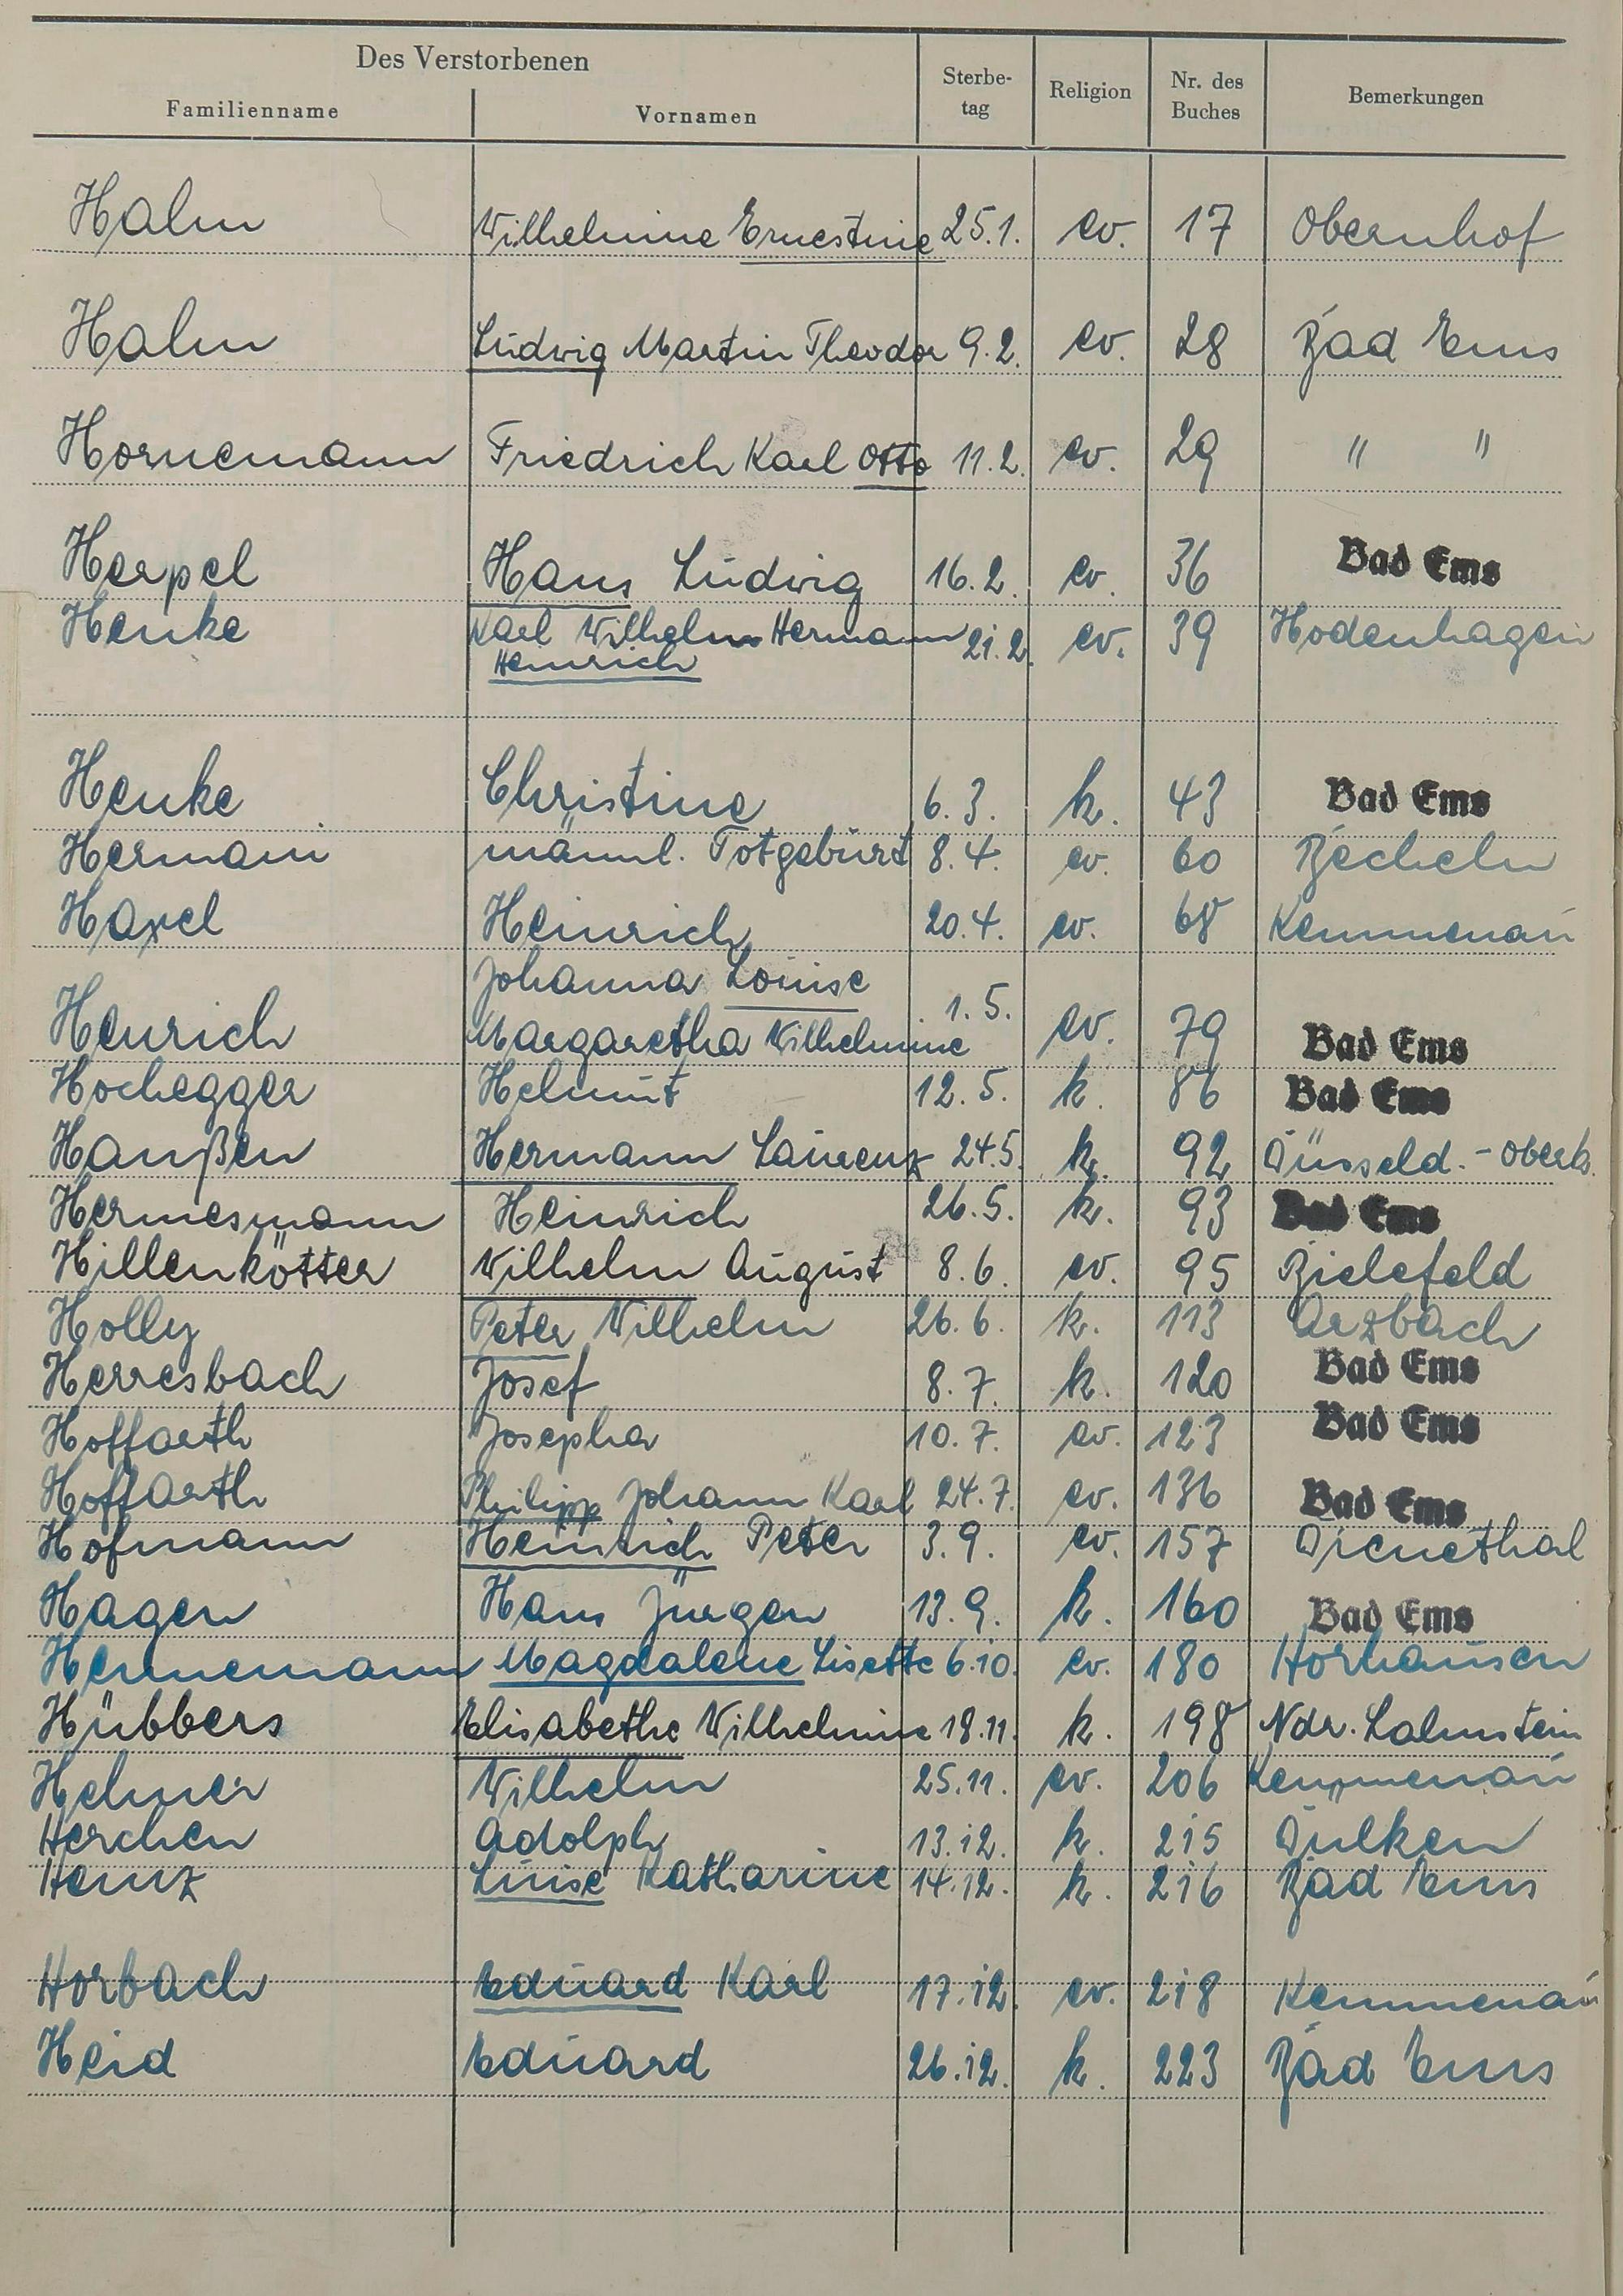 Des Verstorbenen
Familienname Vornamen Sterbe-tag Religion Nr. des Buches Bemerkungen
Halm Wilhelmine Ernestine 25.1. ev. 17 Obernhof
Halm Ludwig Martin Theodor 9.2. ev. 28 Bad Ems
Hornemann Friedrich Karl Otto 11.2. ev. 29 " "
Herpel Hans Ludwig 16.2. ev. 36 Bad Ems
Henke Karl Wilhelm Hermann 21.2. ev. 39 Hodenhagen
Heinrich
Henke Christine 6.3. k. 43 Bad Ems
Hermani männl. Totgeburt 8.4. ev. 60 Becheln
Haxel Heinrich 20.4. ev. 68 Kemmenau
Johanna Louise
Henrich Margaretha Wilhelmine 1.5. ev. 79 Bad Ems
Hochegger Helmut 12.5. k. 86 Bad Ems
Hanßen Hermann Laurenz 24.5. k. 92 Düsseld.-Oberk.
Hermesmann Heinrich 26.5. k. 93 Bad Ems
Hillenkötter Wilhelm August 8.6. ev. 95 Bielefeld
Holly Peter Wilhelm 26.6. k. 113 Arzbach
Herresbach Josef 8.7. k. 120 Bad Ems
Hoffarth Josepha 10.7. ev. 123 Bad Ems
Hoffarth Philipp Johann Karl 24.7. ev. 136 Bad Ems
Hofmann Heinrich Peter 3.9. ev. 157 Dienethal
Hagen Hans Jürgen 13.9. k. 160 Bad Ems
Hennemann Magdalene Lisette 6.10. ev. 180 Horhausen
Hübbers Elisabethe Wilhelmine 18.11. k. 198 Ndr. Lahnstein
Helmer Wilhelm 25.11. ev. 206 Kemmenau
Herchen Adolph 13.12. k. 215 Dülken
Heinz Luise Katharine 14.12. k. 216 Bad Ems
Horbach Eduard Karl 17.12. ev. 218 Kemmenau
Heid Eduard 26.12. k. 223 Bad Ems